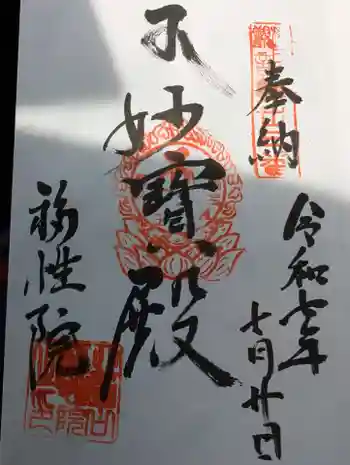 奉納
令和七年
七月廿日
妙寶殿
福性院